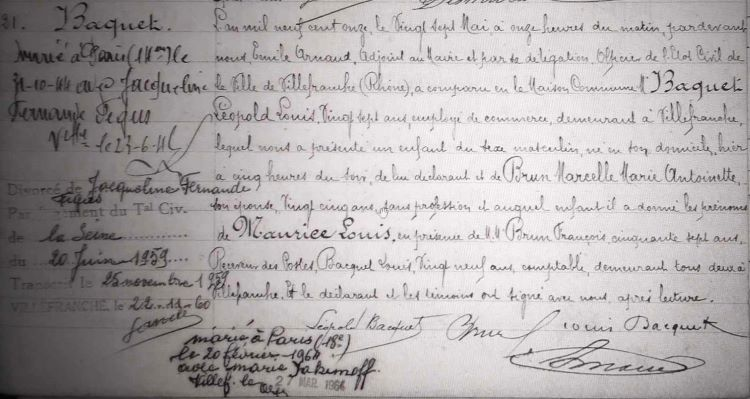 21. Baquet.
marié à Paris (14e) le
31-10-44 avec Jacqueline
Fernande Figus
Vfche le 23-6-46
Divorcé de Jacqueline Fernande
Figus
Par jugement du Tal Civ.
de la Seine
du 20 Juin 1959
Transcrit le 25 novembre 1959
VILLEFRANCHE, le 22-11-60
L'an mil neuf cent onze, le Vingt sept Mai à onze heures du matin, pardevant
nous, Emile Arnaud, Adjoint au Maire et par sa délégation Officier de l'Etat Civil de
la Ville de Villefranche (Rhône), a comparu en la Maison Commune Mr Baquet
Léopold Louis, Vingt sept ans, employé de commerce, demeurant à Villefranche,
lequel nous a présenté un enfant du sexe masculin, né en son domicile, hier
à cinq heures du soir, de lui déclarant et de Brun Marcelle Marie Antoinette,
son épouse, Vingt cinq ans, sans profession et auquel enfant il a donné les prénoms
de Maurice Louis, en présence de M.M. Brun François, cinquante sept ans,
Receveur des Postes, Bacquet Louis, Vingt neuf ans, comptable, demeurant tous deux à
Villefranche, Et le déclarant et les témoins ont signé avec nous, après lecture.
Léopold Bacquet Brun Louis Bacquet
Arnaud
marié à Paris (18e)
le 20 février 1964
avec Marie Jakimoff
Villef. le 27 MAR. 1964